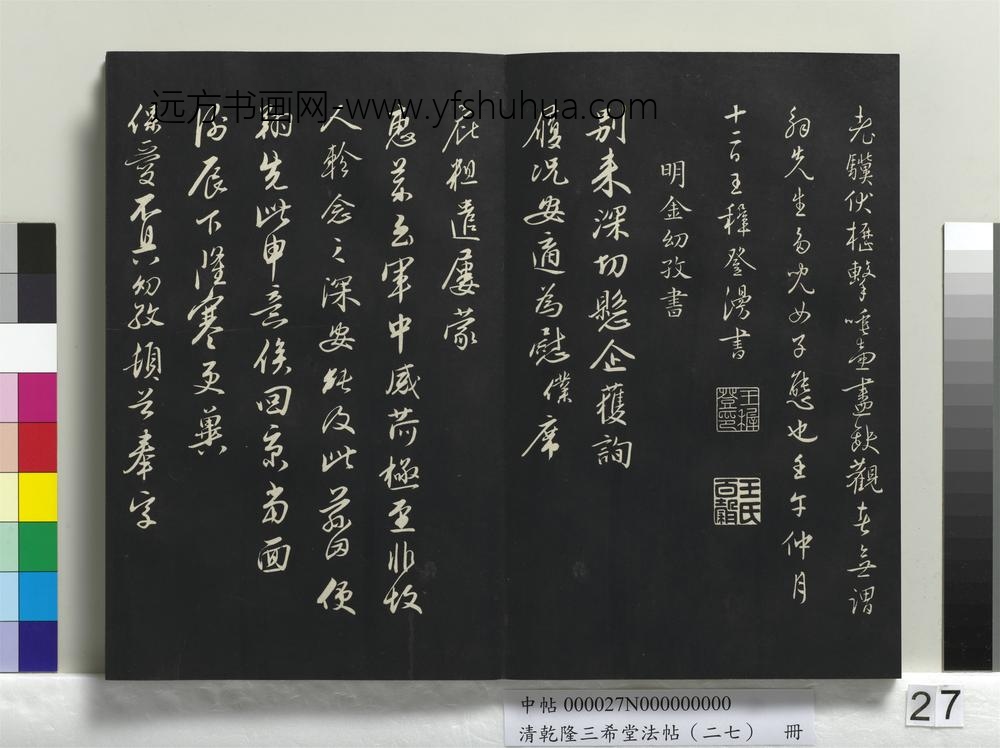 老驥伏櫪擊唾壺盡缺觀者無謂
翁先生多兒女子態也壬午仲月
十二日王穉登漫書
王穉登印
王氏百穀
明金幼孜書
別來深切懸企獲詢
履况安適為慰僕席
庇粗遣屢蒙
惠茶至軍中感荷極至非故
人軫念之深安能及此茲因便
翰先此申意俟回京當面
謝辰下隆寒更冀
保愛不具幼孜頓首奉字
远方书画网-www.yfshuhua.com
中帖 000027N000000000
清乾隆三希堂法帖（二七） 冊
27